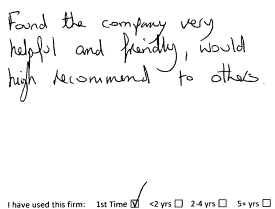 Found the company very
helpful and friendly, would
high recommend to others.
I have used this firm: 1st Time ☑ <2 yrs ☐ 2-4 yrs ☐ 5+ yrs ☐